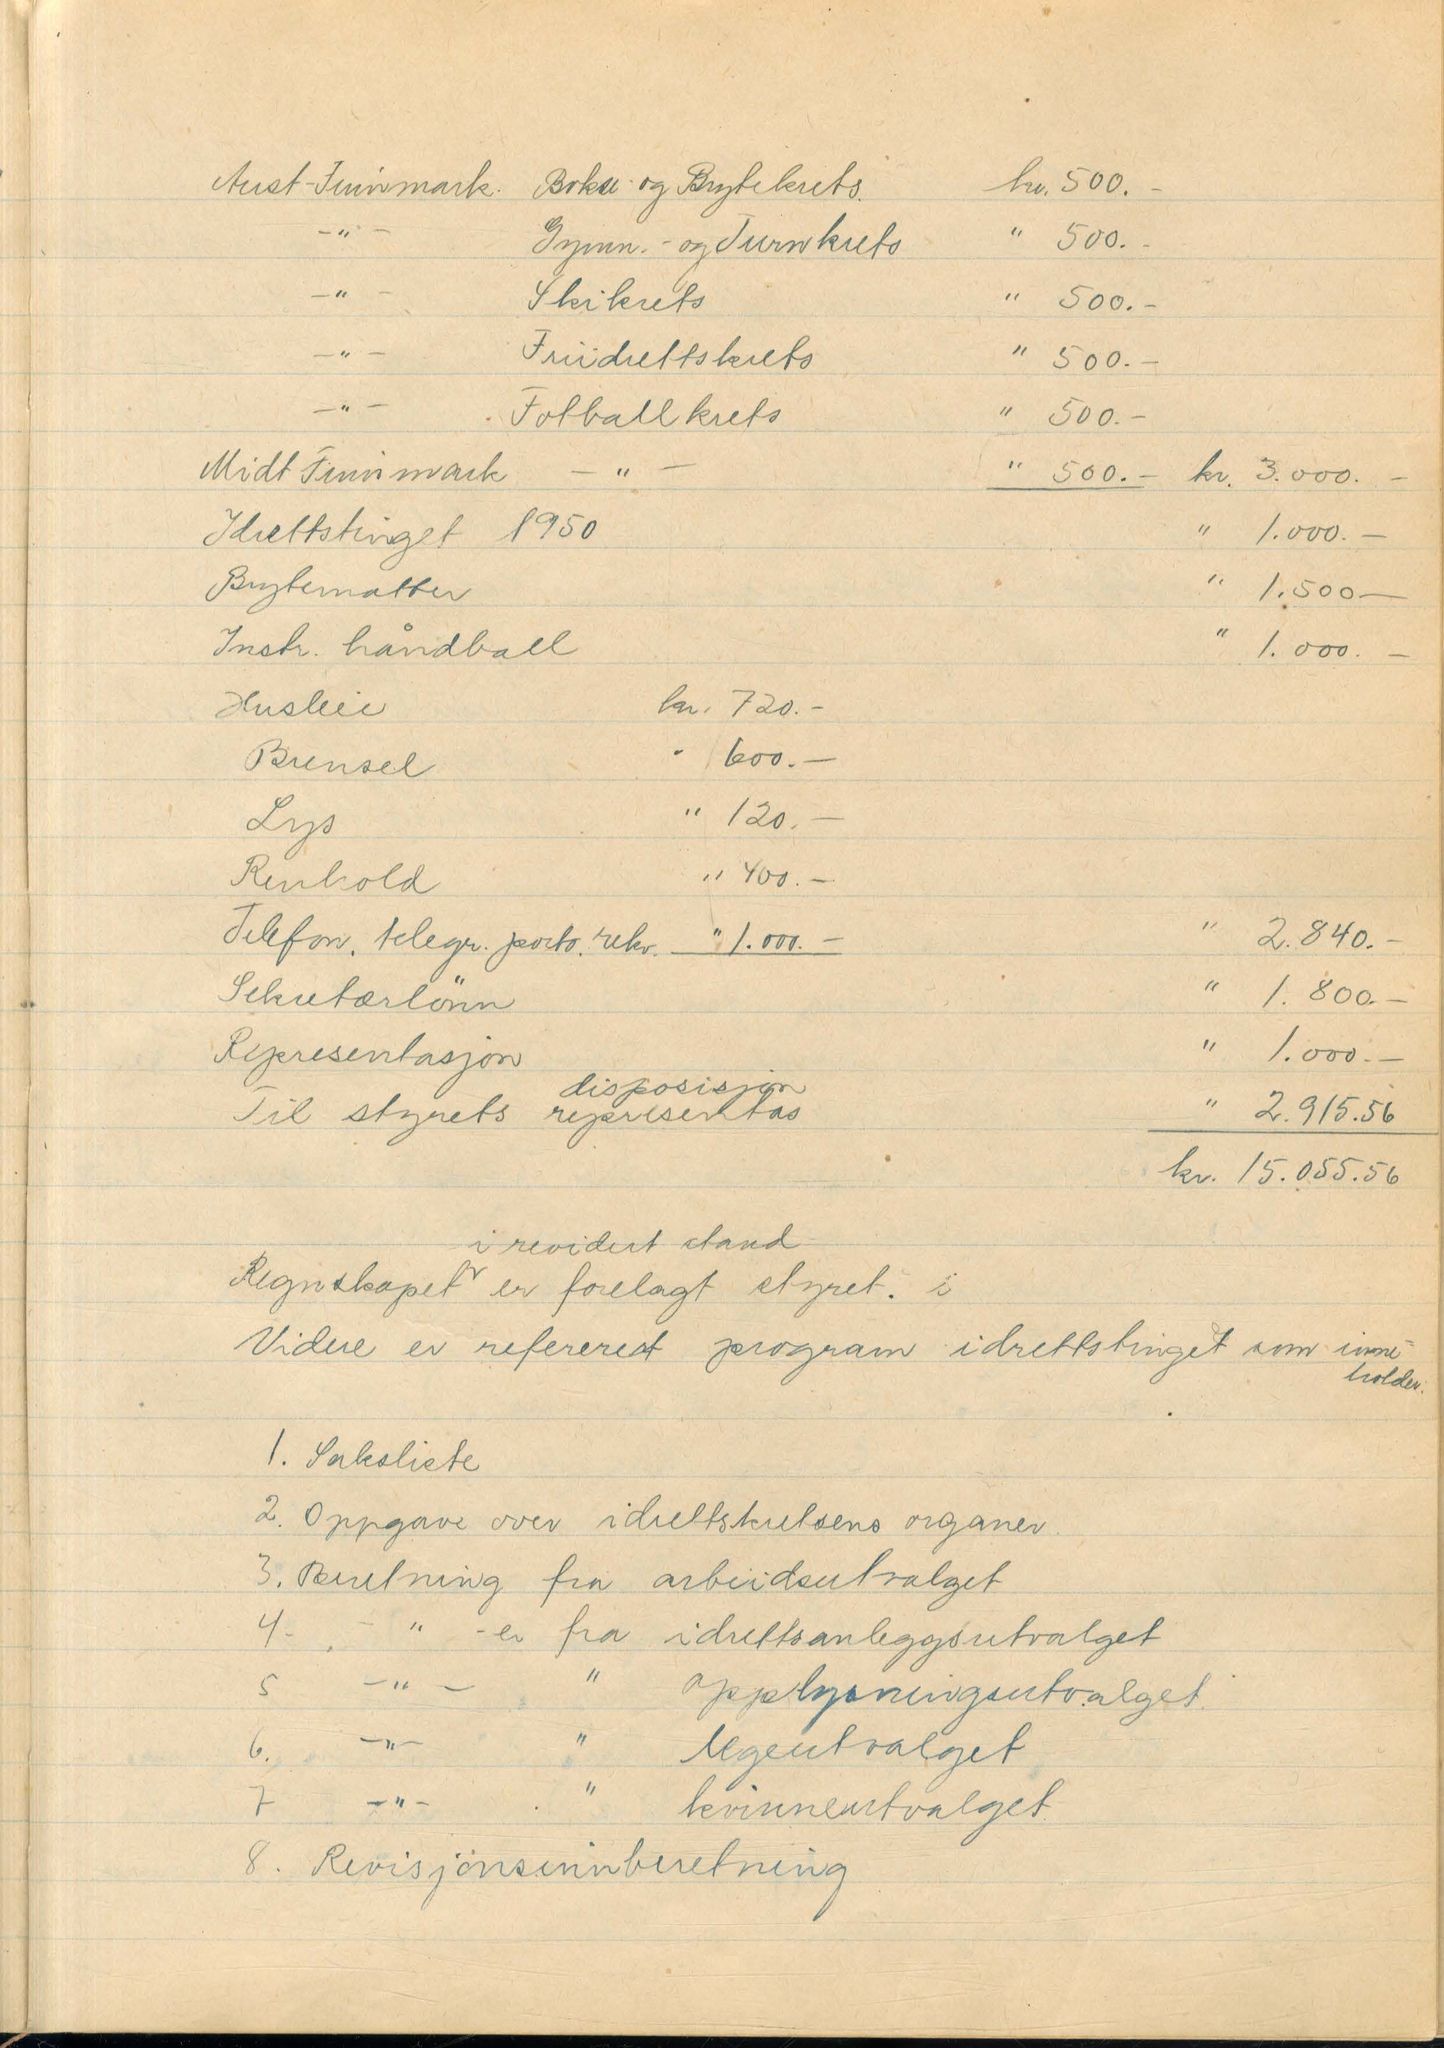 Aust-Finnmark. Bokse- og Brytekrets. kr. 500.-
-"- Gymn.- og Turnkrets " 500.-
-"- Skikrets " 500.-
-"- Friidrettskrets " 500.-
-"- Fotballkrets " 500.-
Midt Finnmark -"- " 500.- kr. 3.000.-
Idrettstinget 1950 " 1.000.-
Brytematter " 1.500-
Instr. håndball " 1.000.-
Husleie kr. 720.-
Brensel " 600.-
Lys " 120.-
Renhold " 400.-
Telefon, telegr. porto. rekv. " 1.000.- " 2.840.-
Sekretærlönn " 1.800.-
Representasjon " 1.000.-
disposisjon
Til styrets representas " 2.915.56
kr. 15.055.56
i revidert stand
Regnskapet er forelagt styret. i
Videre er refererest program idrettstinget som inne-
holder.
1. Saksliste
2. Oppgave over idrettskretsens organer.
3. Beretning fra arbeidsutvalget
4- -"-er fra idrettsanleggsutvalget
5 -"- " opplysningsutvalget.
6. -"- " legeutvalget
7 -"- " kvinneutvalget.
8. Revisjonsinnberetning